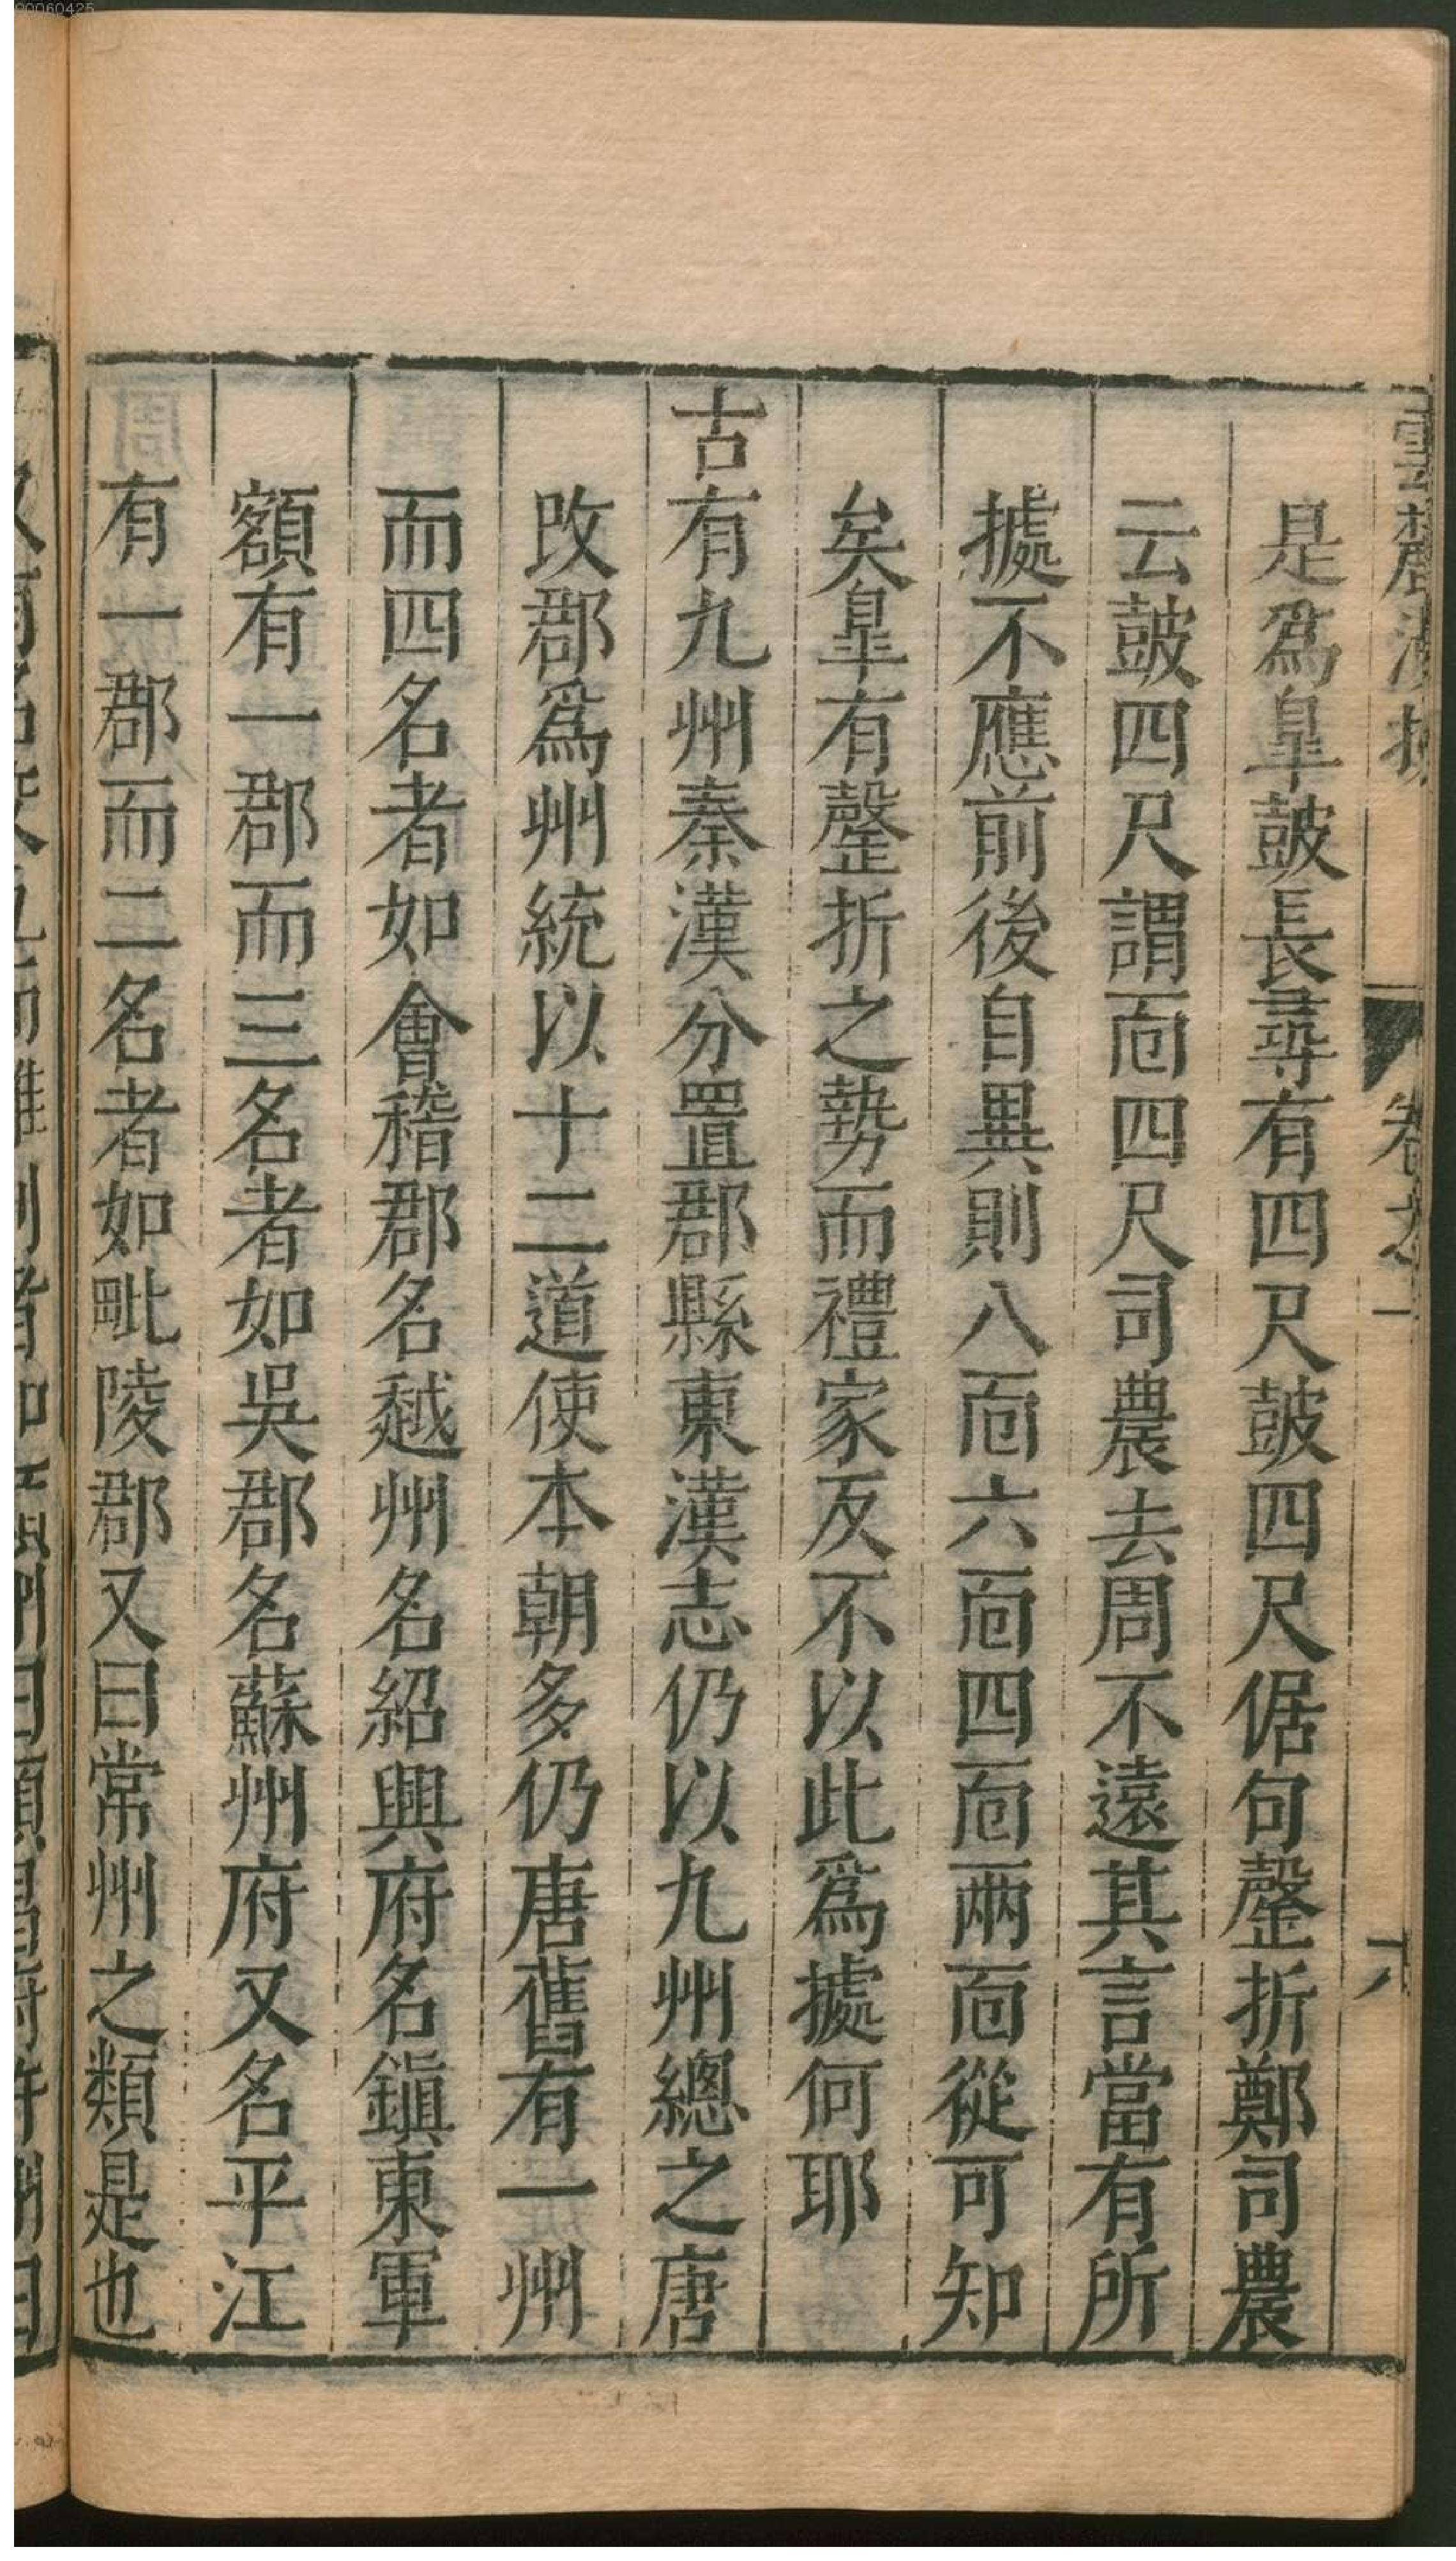 是爲臯皷長尋有四尺皷四尺倨句磬折鄭司農
云皷四尺謂面四尺司農去周不遠其言當有所
據不應前後自異則八面六面四面兩面從可知
矣臯有磬折之勢而禮家反不以此爲據何耶
古有九州秦漢分置郡縣東漢志仍以九州總之唐
改郡爲州統以十二道使本朝多仍唐舊有一州
而四名者如會稽郡名越州名紹興府名鎮東軍
額有一郡而三名者如吳郡名蘇州府又名平江
有一郡而二名者如毗陵郡又曰常州之類是也